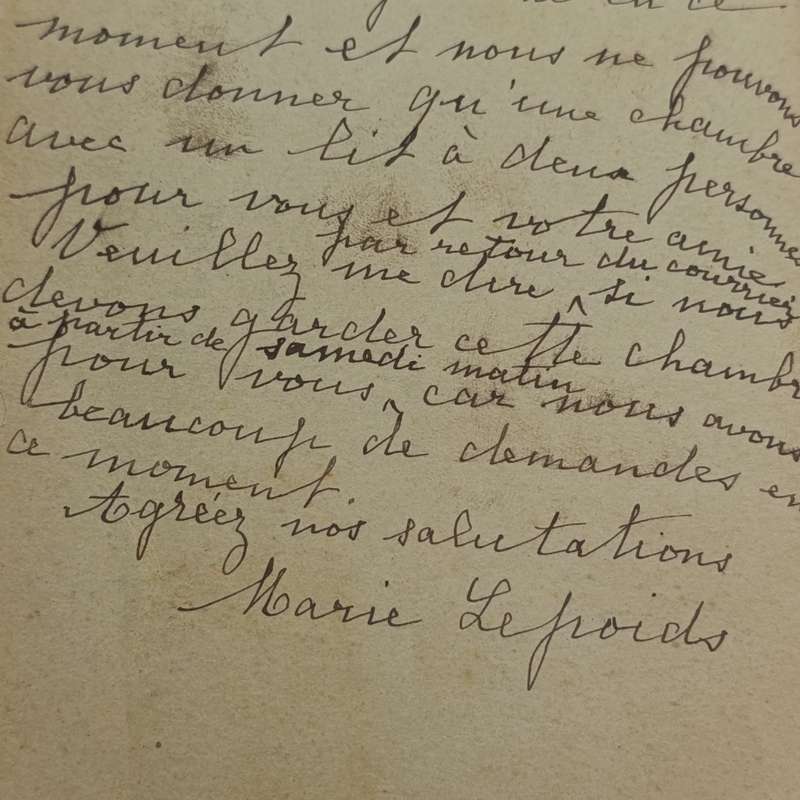 en ce
moment et nous ne pouvons
vous donner qu'une chambre
avec un lit à deux personnes
pour vous et votre amie.
par retour du courrier
Veuillez me dire ^ si nous
devons garder cette chambre
à partir de samedi matin
pour vous ^, car nous avons
beaucoup de demandes en
ce moment.
Agréez nos salutations
Marie Lepoids